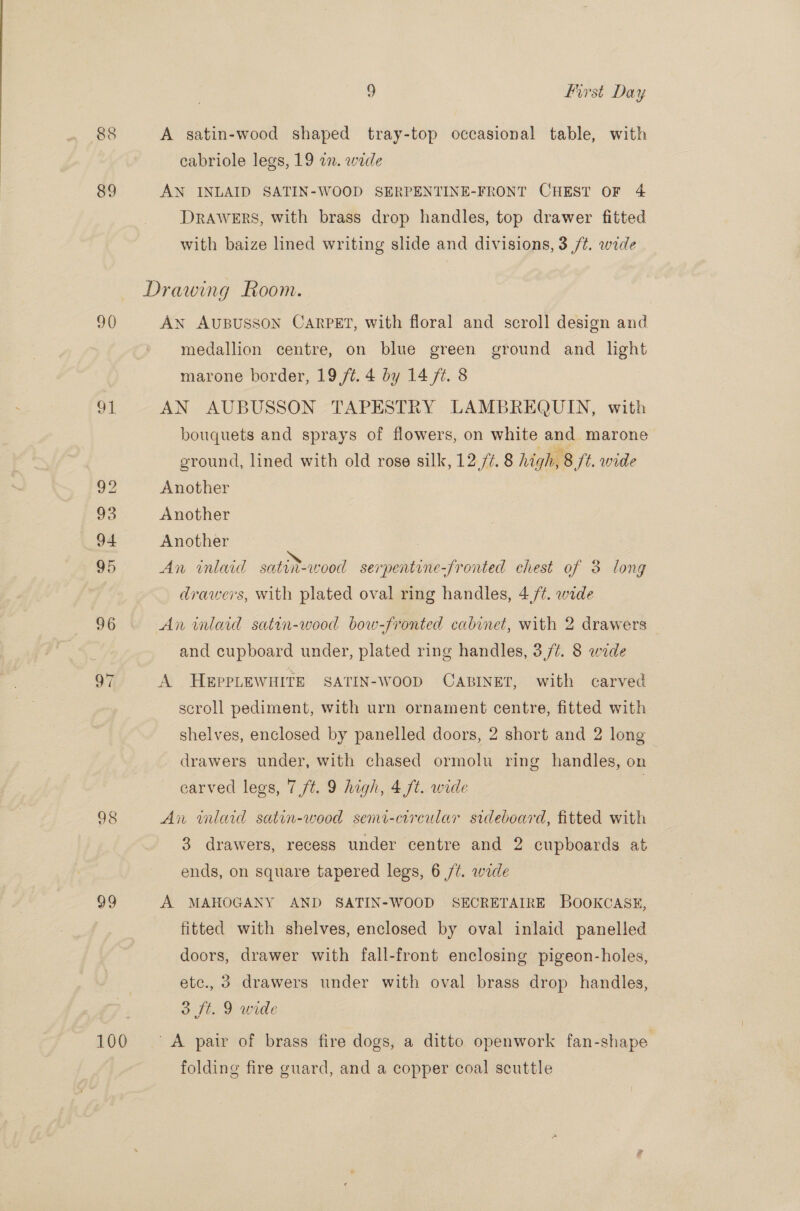 9 First Day
88 A satin-wood shaped tray-top occasional table, with
cabriole legs, 19 in. wide
89 AN INLAID SATIN-WOOD SERPENTINE-FRONT CHEST OF 4
DRAWERS, with brass drop handles, top drawer fitted
with baize lined writing slide and divisions, 3 ft. wide
Drawing Room.
90 AN AUBUSSON CARPET, with floral and scroll design and
medallion centre, on blue green ground and light
marone border, 19 ft. 4 by 14 ft. 8
91 AN AUBUSSON TAPESTRY LAMBREQUIN, with
bouquets and sprays of flowers, on white and marone
ground, lined with old rose silk, 12 ft. 8 high, 8 ft. wide
92 Another
93 Another
94 Another
95 An inlaid satin-wood serpentine-fronted chest of 3 long
drawers, with plated oval ring handles, 4 ft. wide
96 An inlaid satin-wood bow-fronted cabinet, with 2 drawers
and cupboard under, plated ring handles, 3 ft. 8 wide
97 A HEPPLEWHITE SATIN-WOOD CABINET, with carved
scroll pediment, with urn ornament centre, fitted with
shelves, enclosed by panelled doors, 2 short and 2 long
drawers under, with chased ormolu ring handles, on
carved legs, 7 ft. 9 high, 4 ft. wide
98 An inlaid satin-wood semi-circular sideboard, fitted with
3 drawers, recess under centre and 2 cupboards at
ends, on square tapered legs, 6 ft. wide
99 A MAHOGANY AND SATIN-WOOD SECRETAIRE BOOKCASE,
fitted with shelves, enclosed by oval inlaid panelled
doors, drawer with fall-front enclosing pigeon-holes,
etc., 3 drawers under with oval brass drop handles,
3 ft. 9 wide
100 A pair of brass fire dogs, a ditto openwork fan-shape
folding fire guard, and a copper coal scuttle